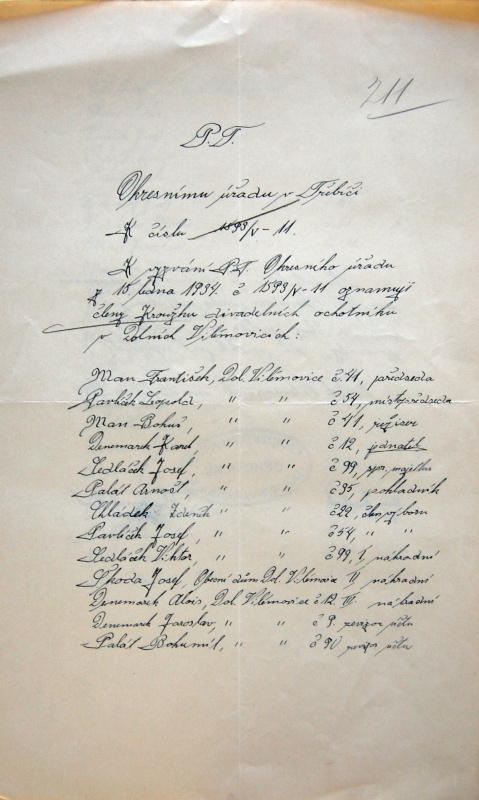 211
P.T.
Okresnímu úřadu v Třebíči
K číslu 1593/V-11.
K vyzvání P.T. Okresního úřadu
z 15. ledna 1934. č 1593/V-11 oznamuji
členy Kroužku divadelních ochotníku
v Dolních Vilímovicích:
Man František, Dol. Vilímovice č. 41, předseda
Pavlíček Leopold, " " č 54, místopředseda
Man Bohuš, " " č 41, režiser
Denemarek Karel " " č 12, jednatel
Sedláček Josef, " " č 99, spr. majetku
Palát Arnošt, " " č 35, pokladník
Chládek Zdeněk " " č 22, člen výboru
Pavlíček Josef, " " č 54, " "
Sedláček Viktor " " č 99, I. náhradní
Škoda Josef, Obecní dům Dol. Vilímovice II náhradní
Denemarek Alois, Dol. Vilímovice č 12. III. náhradní
Denemarek Jaroslav, " " č 9. revizor účtu
Palát Bohumil, " " č 90 revizor účtu